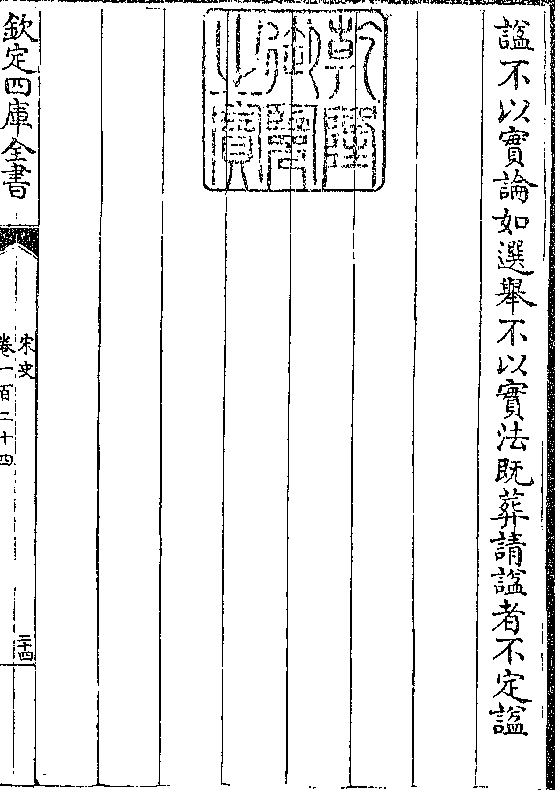 諡不以實論如選舉不以實法既葬請諡者不定諡
乾隆御覽之寶
欽定四庫全書
宋史
卷一百二十四
二十四